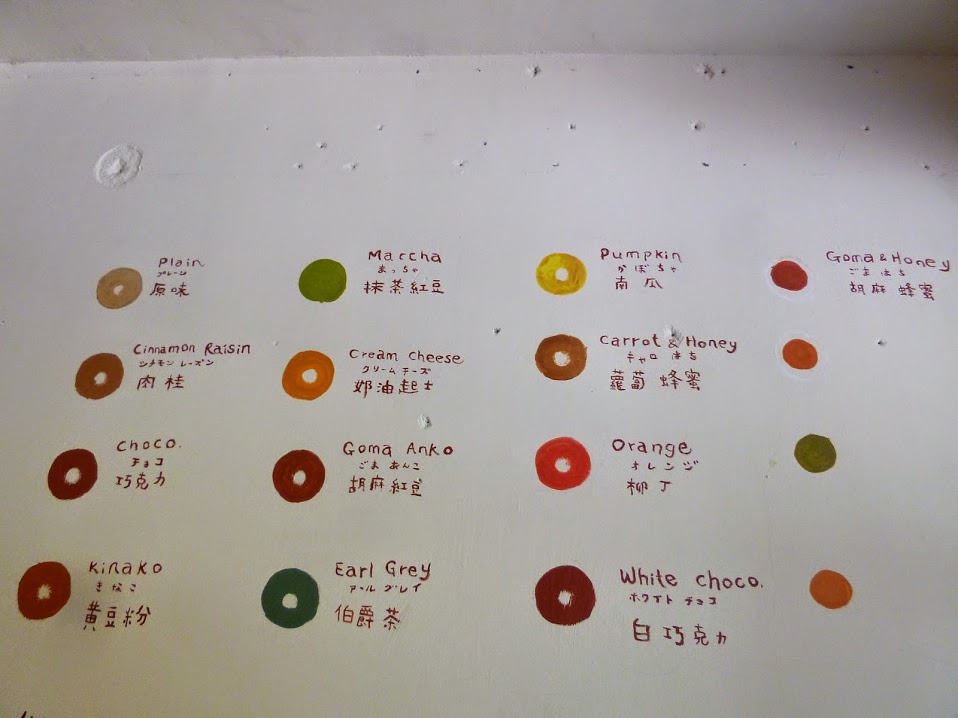 Plain
プレーン
原味
Marcha
まっちゃ
抹茶紅豆
Pumpkin
かぼちゃ
南瓜
Goma & Honey
ごま はち
胡麻 蜂蜜
Cinnamon Raisin
シナモン レーズン
肉桂
Cream Cheese
クリーム チーズ
奶油起士
Carrot & Honey
キャロ はち
蘿蔔 蜂蜜
Choco.
チョコ
巧克力
Goma Anko
ごま あんこ
胡麻紅豆
Orange
オレンジ
柳丁
Kinako
きなこ
黄豆粉
Earl Grey
アール グレイ
伯爵茶
White choco.
ホワイト チョコ
白 巧克力